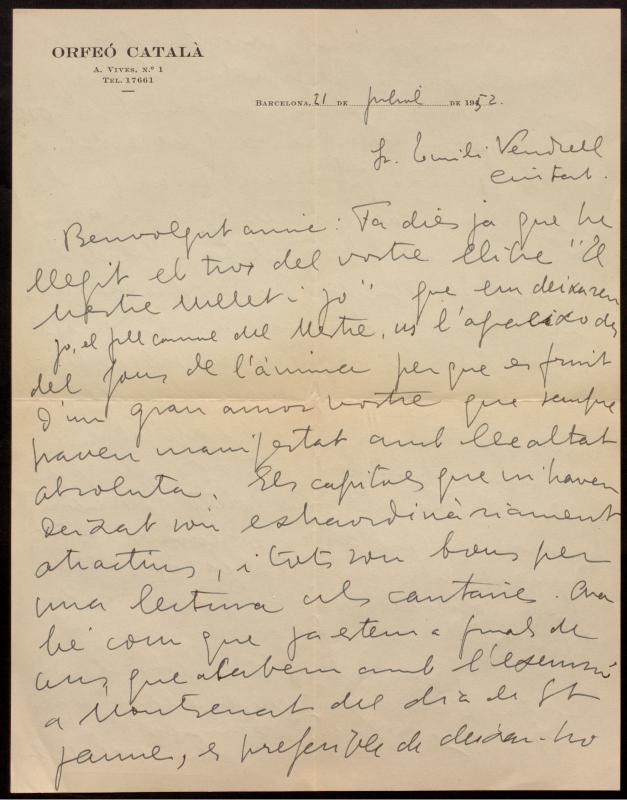 ORFEÓ CATALÀ
A. VIVES, N.º 1
TEL. 17661
BARCELONA, 21 DE juliol DE 1952.
Sr. Emili Vendrell
Ciutat.
Benvolgut amic: Fa dies ja que he
llegit el troç del vostre llibre "El
Mestre Millet i jo" que em deixaren
Jo, el fill carnal del Mestre, us l'agraeixo des
del fons de l'ànima perque es fruit
d'un gran amor vostre que sempre
haveu manifestat amb lleialtat
absoluta. Els capitols que m'haveu
deixat són extraordinàriament
atractius, i tots son bons per
una lectura als cantaires. Ara
bé com que ja estem a finals de
curs que acabem amb l'excursió
a Montserrat del dia de St
Jaume, es preferible de deixar-ho